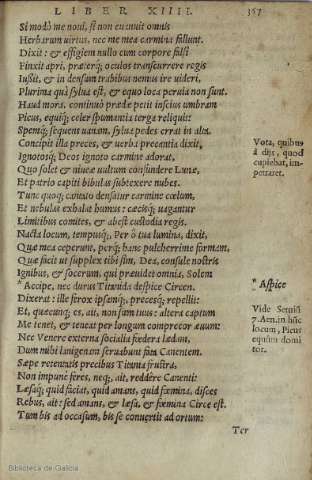 LIBER XIIII. 367
Si modò me noui, si non euanuit omnis
Herbarum uirtus, nec me mea carmina fallunt.
Dixit: & effigiem nullo cum corpore falsi
Finxit apri, præterq́; oculos transcurrere regis
Iußit, & in densum trabibus nemus ire uideri,
Plurima quà sylua est, & equo loca peruia non sunt.
Haud mora, continuò prædæ petit inscius umbram
Picus, equiq́; celer spumantia terga relíquit:
Spemq́; sequens uanam, sylua pedes errat in alta.
Concipit illa preces, & uerba precantia dixit,
Ignotosq́; Deos ignoto carmine adorat,
Quo solet & niueæ uultum confundere Lunæ,
Et patrio capiti bibulas subtexere nubes.
Tunc quoq; cantato densatur carmine cœlum,
Et nebulas exhalat humus: cæcisq́; uagantur
Limitibus comites, & abest custodia regis.
Nacta locum, tempusq́;, Per ô tua lumina, dixit,
Quæ mea ceperunt, perq́; hanc pulcherrime formam,
Quæ facit ut supplex tibi sim, Dea, consule nostris
Ignibus, & socerum, qui præuidet omnia, Solem
* Accipe, nec durus Titanida despice Circen.
Dixerat: ille ferox ipsamq́;, precesq́; repellit:
Et, quæcunq; es, ait, non sum tuus: altera captum
Me tenet, & teneat per longum comprecor æuum:
Nec Venere externa socialia fœdera lædam,
Dum mihi Ianigenam seruabunt fata Canentem.
Sæpe retentatis precibus Titania frustra,
Non impunè feres, neq;, ait, reddêre Canenti:
Læsaq́; quid faciat, quid amans, quid fœmina, disces
Rebus, ait: sed amans, & læsa, & fœmina Circe est.
Tum bis ad occasum, bis se conuertit ad ortum:
Ter
Vota, quibus
à dijs, quod
cupiebat, im-
petraret.
* Aspice
Vide Seruiũ
7. Aen. in hũc
locum, Picus
equûm domi
tor.
Biblioteca de Galicia